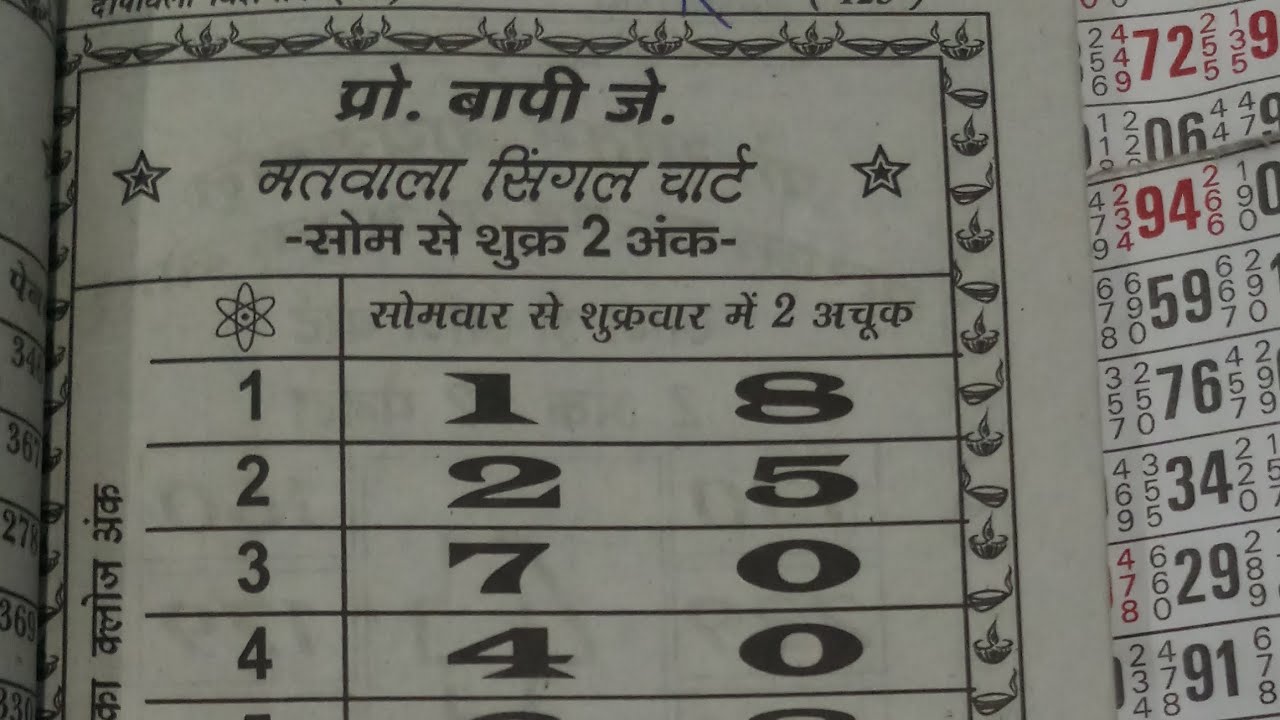 प्रो. बापी जे.
मतवाला सिंगल चार्ट
-सोम से शुक्र 2 अंक-
सोमवार से शुक्रवार में 2 अचूक
1 1 8
2 2 5
3 7 0
4 4 0
का क्लोज अंक
367
278
369
330
256 449 72 255 135 9
06
479 234 94 266 190 0
678 690 59 667 290 1
357 250 76 457 299
469 355 34 220 157
478 660 29 289
234 478 91 678